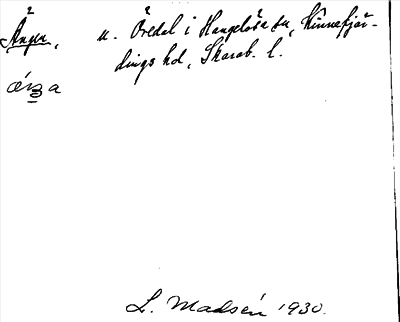 Ängen, u. Öredal i Hangelösa sn, Kinnefjär-
dings hd, Skarab. l.
ænga
L. Madsén 1930.